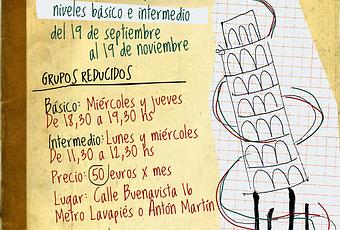 niveles básico e intermedio
del 19 de septiembre
al 19 de noviembre
GRUPOS REDUCIDOS
Básico: Miércoles y jueves
De 18,30 a 19,30 hs
Intermedio: Lunes y miércoles
De 11,30 a 12,30 hs
Precio: 50 euros x mes
Lugar: Calle Buenavista 16
Metro Lavapiés o Antón Martín